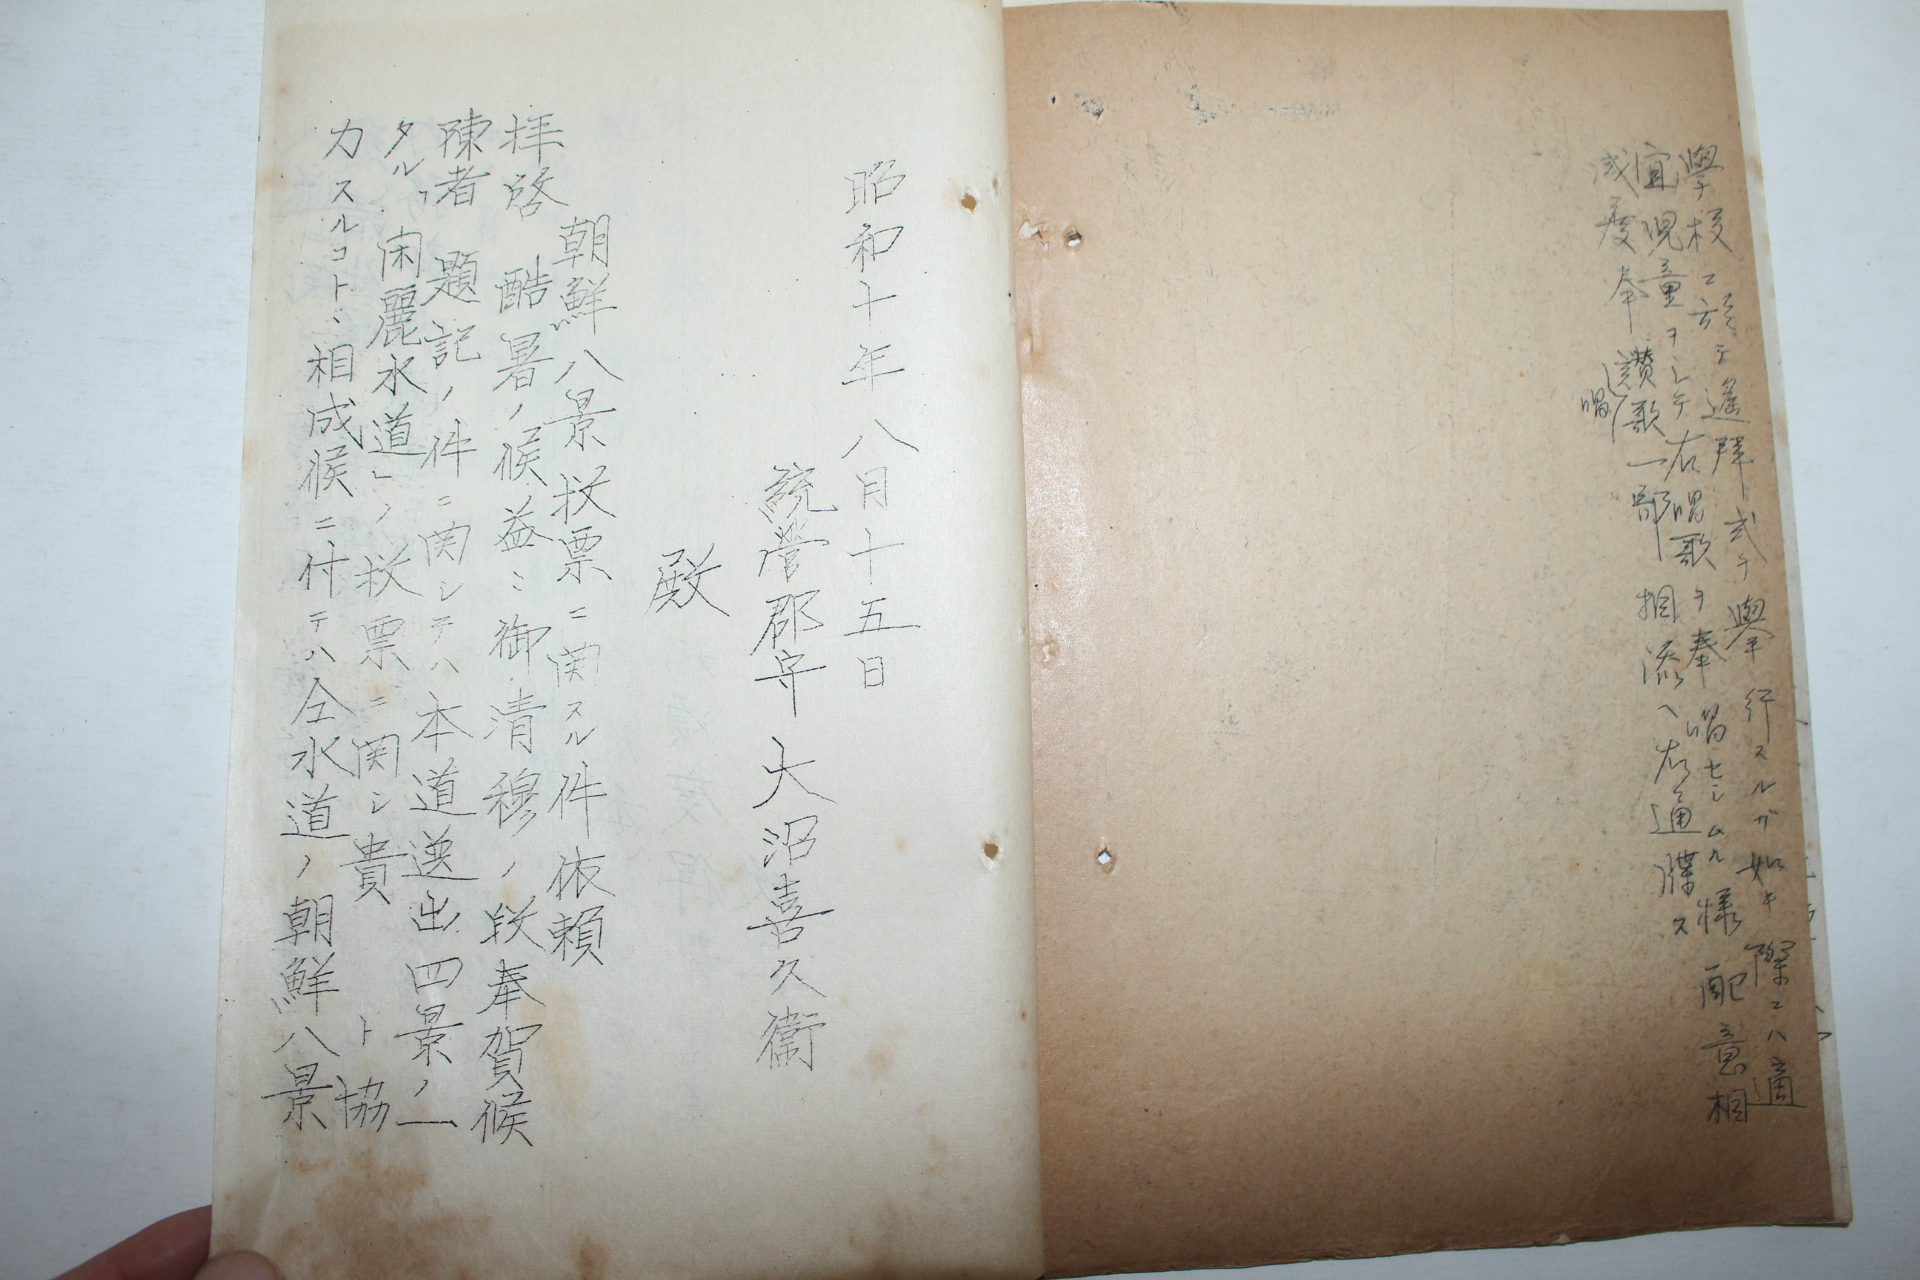 學校ニ於テ遙拜式ヲ擧行スルガ如キ際ニハ適
宜児童ヲシテ右唱歌ヲ奉唱セシムル様配意相
成度奉讃歌一部相添ヘ右通牒ス
唱
昭和十年八月十五日
統営郡守 大沼喜久衞
殿
朝鮮八景投票ニ関スル件依頼
拝啓 酷暑ノ候益ミ御清穆ノ段奉賀候
陳者題記ノ件ニ関シテハ本道選出四景ノ一
タル「閑麗水道」ノ投票ニ関シ貴 ト協
力スルコトヽ相成候ニ付テハ仝水道ノ朝鮮八景